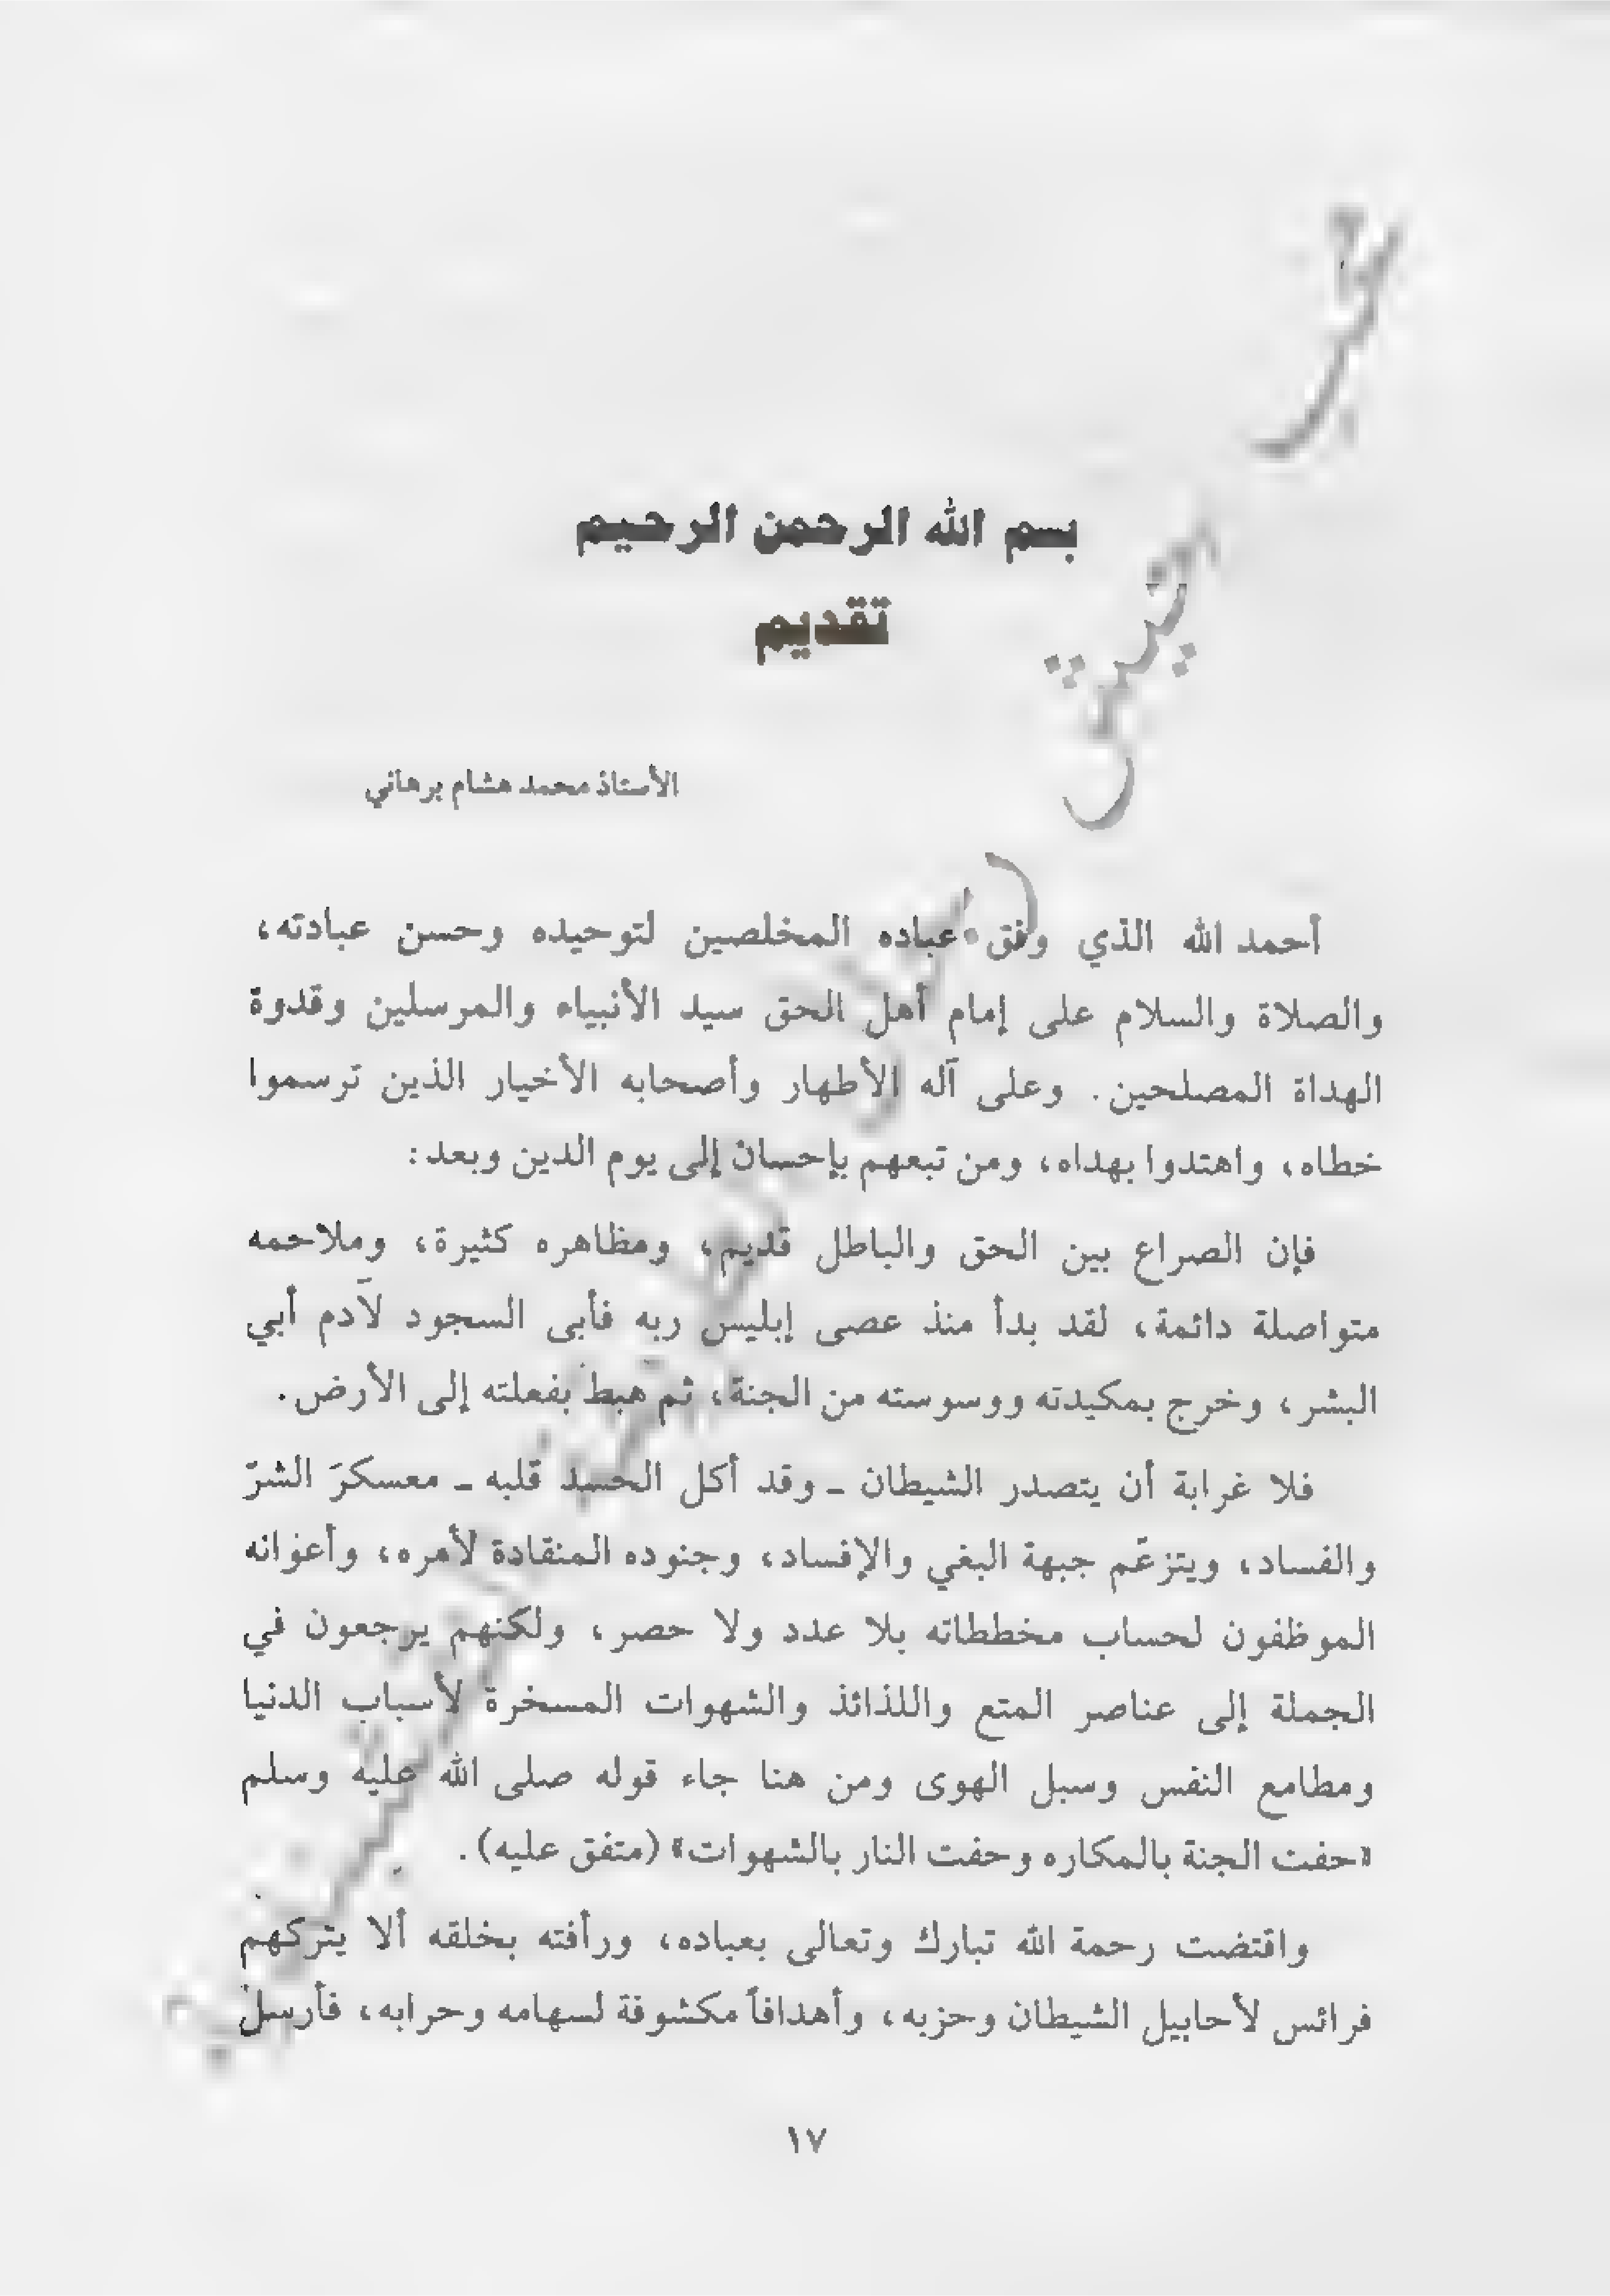 بسم الله الرحمن الرحيم
تقديم
الأستاذ محمد هشام برهاني
أحمد الله الذي وفق عباده المخلصين لتوحيده وحسن عبادته،
والصلاة والسلام على إمام أهل الحق سيد الأنبياء والمرسلين وقدوة
الهداة المصلحين. وعلى آله الأطهار وأصحابه الأخيار الذين ترسموا
خطاه، واهتدوا بهداه، ومن تبعهم بإحسان إلى يوم الدين وبعد:
فإن الصراع بين الحق والباطل قديم، ومظاهره كثيرة، وملاحمه
متواصلة دائمة، لقد بدأ منذ عصى إبليس ربه فأبى السجود لآدم أبي
البشر، وخرج بمكيدته ووسوسته من الجنة، ثم هبط بفعلته إلى الأرض.
فلا غرابة أن يتصدر الشيطان ـ وقد أكل الحسد قلبه ـ معسكرَ الشرّ
والفساد، ويتزعّم جبهة البغي والإفساد، وجنوده المنقادة لأمره، وأعوانه
الموظفون لحساب مخططاته بلا عدد ولا حصر، ولكنهم يرجعون في
الجملة إلى عناصر المتع واللذائذ والشهوات المسخرة لأسباب الدنيا
ومطامع النفس وسبل الهوى ومن هنا جاء قوله صلى الله عليه وسلم
«حفت الجنة بالمكاره وحفت النار بالشهوات» (متفق عليه).
واقتضت رحمة الله تبارك وتعالى بعباده، ورأفته بخلقه ألا يتركهم
فرائس لأحابيل الشيطان وحزبه، وأهدافاً مكشوفة لسهامه وحرابه، فأرسل
١٧